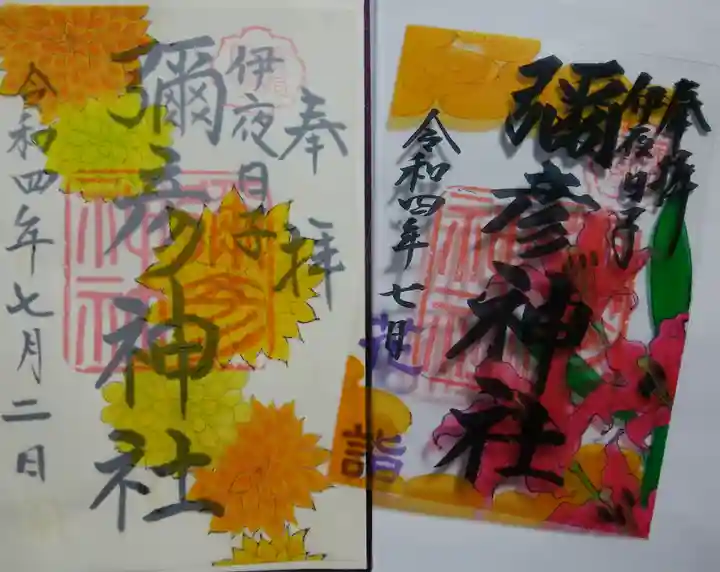 奉拝
伊夜日子
彌彦神社
令和四年七月二日
奉拝
伊夜日子
彌彦神社
令和四年七日
花詣